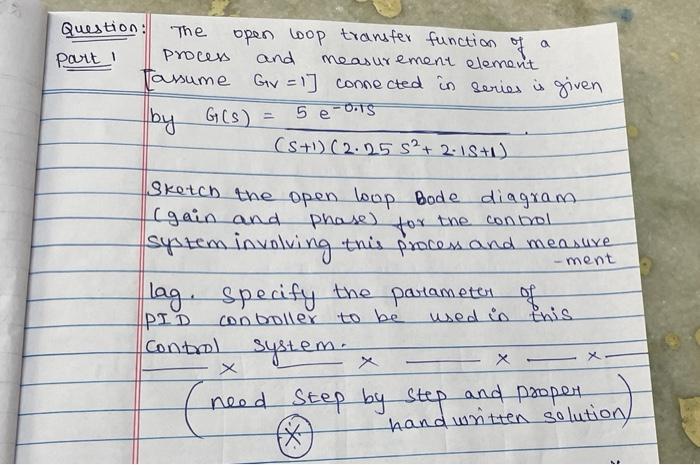 Question: The open loop transfer function of a
part 1 process and measurement element
[assume Gv = 1] connected in series is given
by G(s) = 5 e^-0.1s
(s+1) (2.25 s² + 2.1s+1)
Sketch the open loop Bode diagram
(gain and phase) for the control
system involving this process and measure
-ment
lag. Specify the parameter of
PID controller to be used in this
control system.
x x x x
(need step by step and proper
handwritten solution)